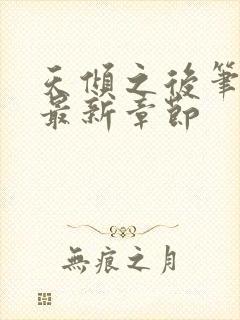 天傾之後筆
最新章節
無痕之月